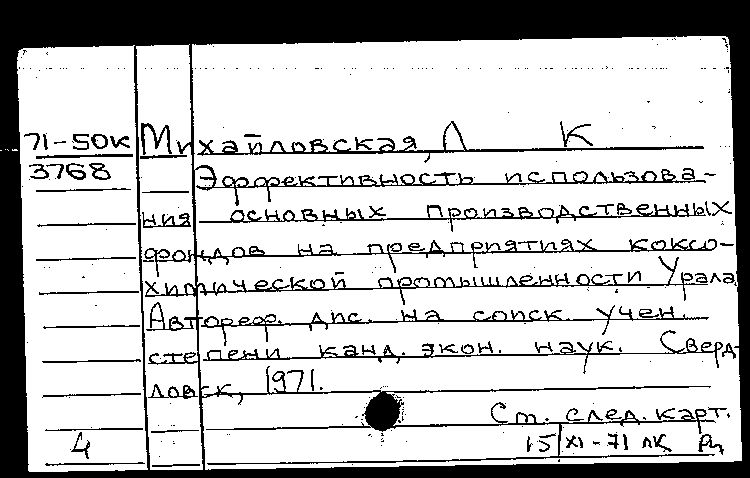 71-50к Михайловская, Л К
3768 Эффективность использова-
ния основных производственных
фондов на предприятиях коксо-
химической промышленности Урала
Автореф. дис. на соиск учен.
степени канд. экон. наук. Сверд-
ловск, 1971.
Ст. след. карт.
4 15/XI-71 лк Рц